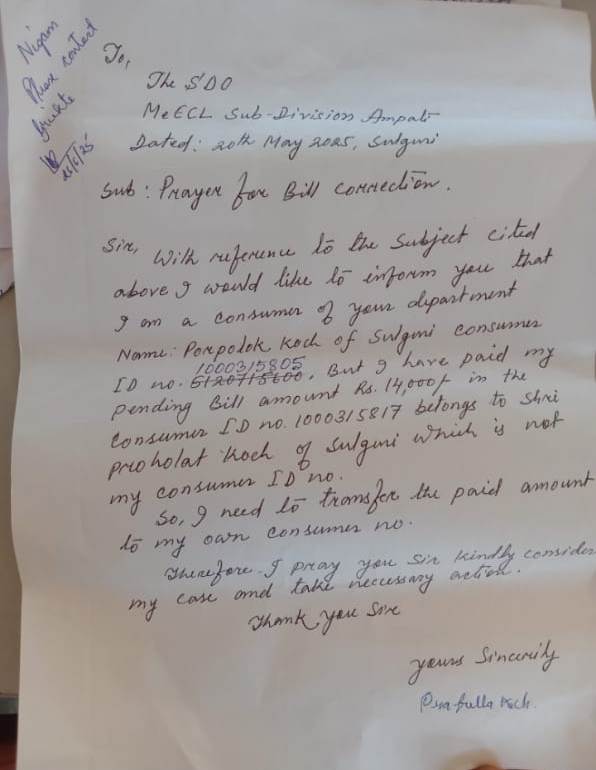 Nigam
Please contact
26/5/25
To,
The SDO
MeECL Sub-Division Ampati
Dated: 20th May 2025, Sulguri
Sub: Prayer for Bill correction.
Sir, With reference to the Subject cited
above I would like to inform you that
I am a consumer of your department
Name: Porpodok Koch of Sulguri consumer
1000315805
ID no. 5120715600, But I have paid my
pending Bill amount Rs. 14,000/- in the
Consumer ID no. 1000315817 belongs to Shri
Proholat Koch of Sulguri which is not
my consumer ID no.
So, I need to transfer the paid amount
to my own consumer no.
Therefore I pray you Sir kindly consider
my case and take necessary action.
Thank you Sir
yours Sincerily
Prafulla Koch.